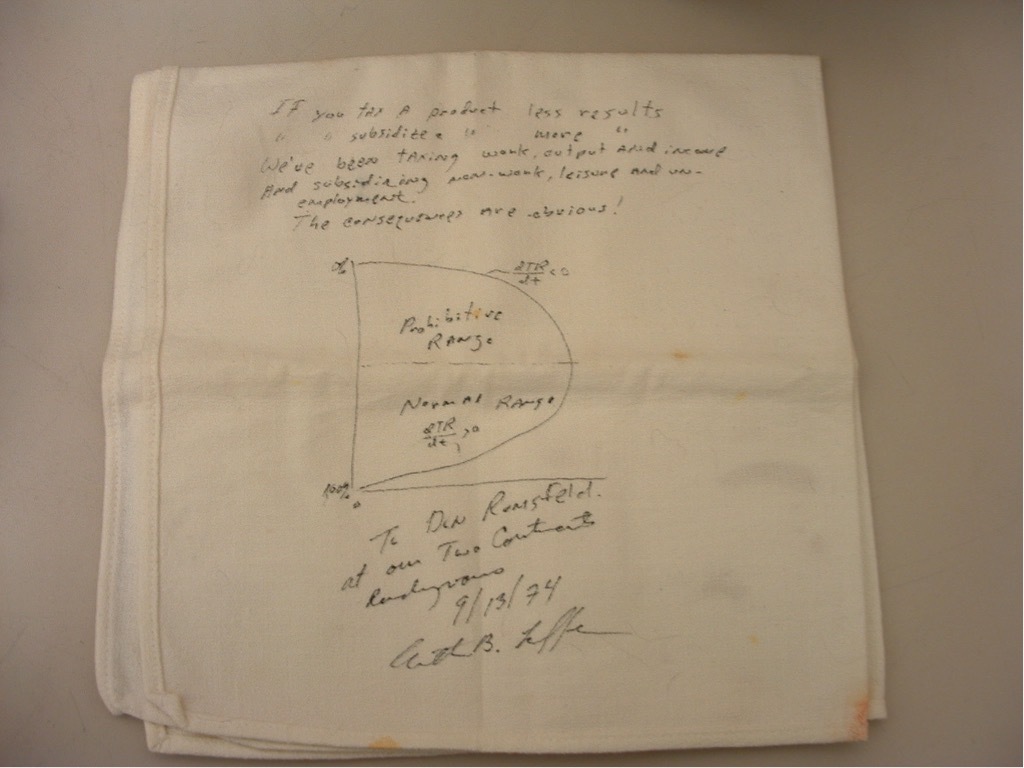 If you tax a product less results
" " subsidize " " more "
We've been taxing work, output and income
And subsidizing non-work, leisure and un-
employment.
The consequences are obvious!
0%
dTR/dt < 0
Prohibitive
Range
Normal Range
dTR/dt > 0
100%
0
To Don Rumsfeld.
at our Two Continents
Rendezvous
9/13/74
Arthur B. Laffer